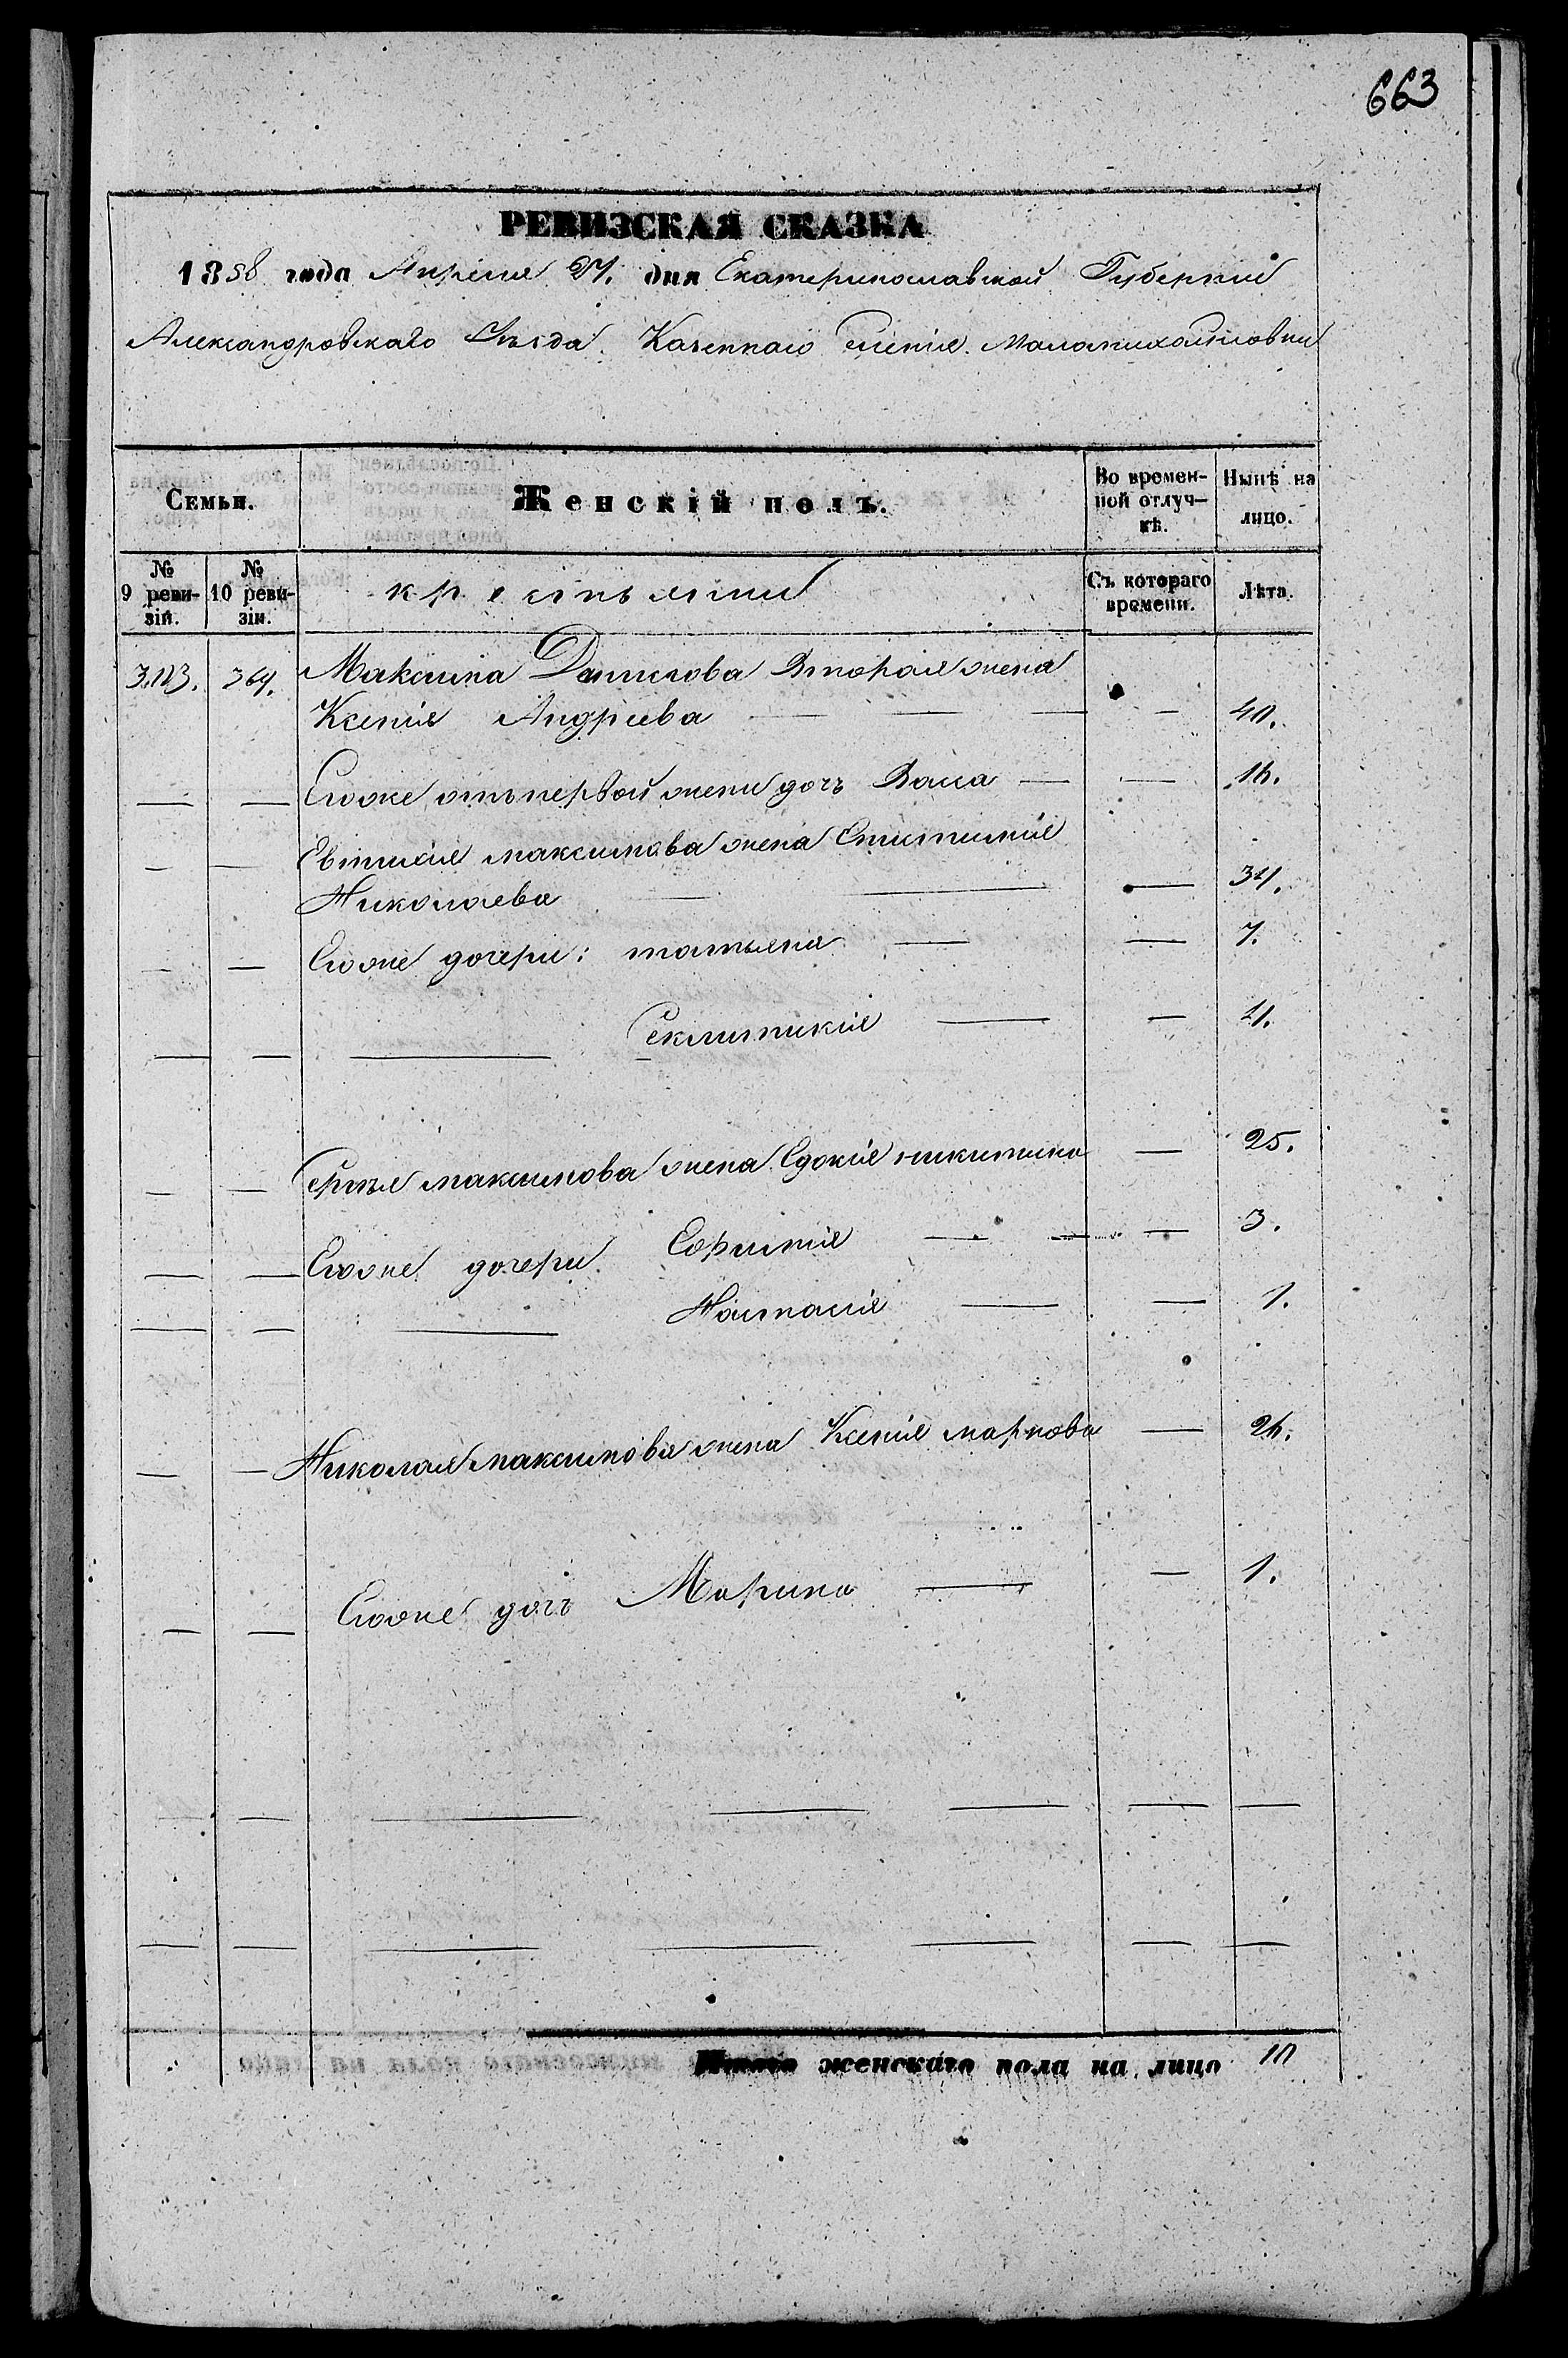 663
РЕВИЗСКАЯ СКАЗКА
1858 года Апреля 21. дня Екатеринославской Губернии
Александровскаго Уѣзда. Казеннаго селенія. Маломихайловки
Семьи.
Женскій полъ.
Во времен-
ной отлуч-
кѣ.
Нынѣ на
лицо.
№
9 реви-
зіи.
№
10 реви-
зіи.
крестьяни
Съ котораго
времени.
Лѣта.
364. Максима Данилова Вторая жена
Ксенія Андреева 40.
Егоже отъ первой жени дочъ Васса 16.
Евтихія максимова жена
Николаева 34.
Егоже дочери: татьяна 7.
Секлитикія 4.
Сергѣя максимова жена Едокія никитина 25.
Егоже дочери Ефимія 3.
Настасія 1.
Николая максимова жена Ксенія маркова 26.
Егоже дочъ Марина 1.
Итого женскаго пола на лицо 10